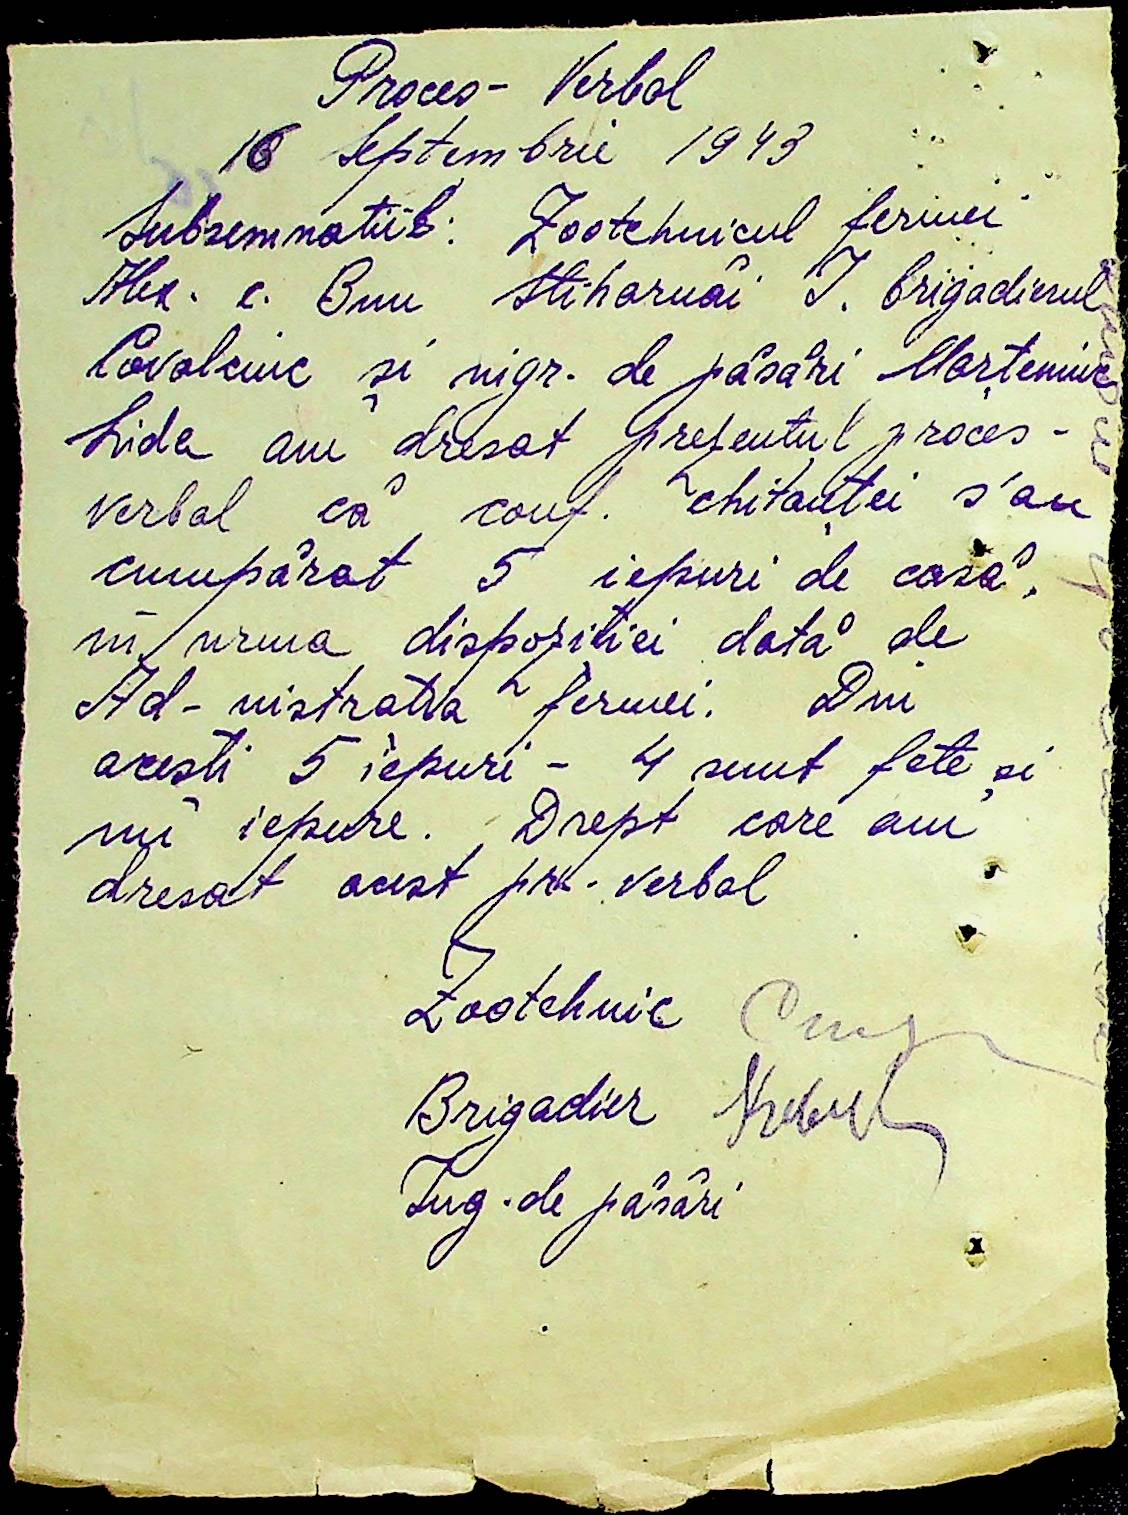 Proces- Verbal
16 Septembrie 1943
Subsemnatii: Zootehnicul fermei
Alex. c. Bnu Stiharuăi I. brigadierul
Covalciuc și nigr. de păsări Marteniuc
Lida am dresat prezentul proces-
verbal că conf. chitanței s'au
cumpărat 5 iepuri de casă,
în urma dispoziției dată de
Ad-nistratia fermei. Din
acesti 5 iepuri - 4 sunt fete și
un iepure. Drept care am
dresat acest pr. verbal
Zootehnic
Brigadier
Ing. de păsări